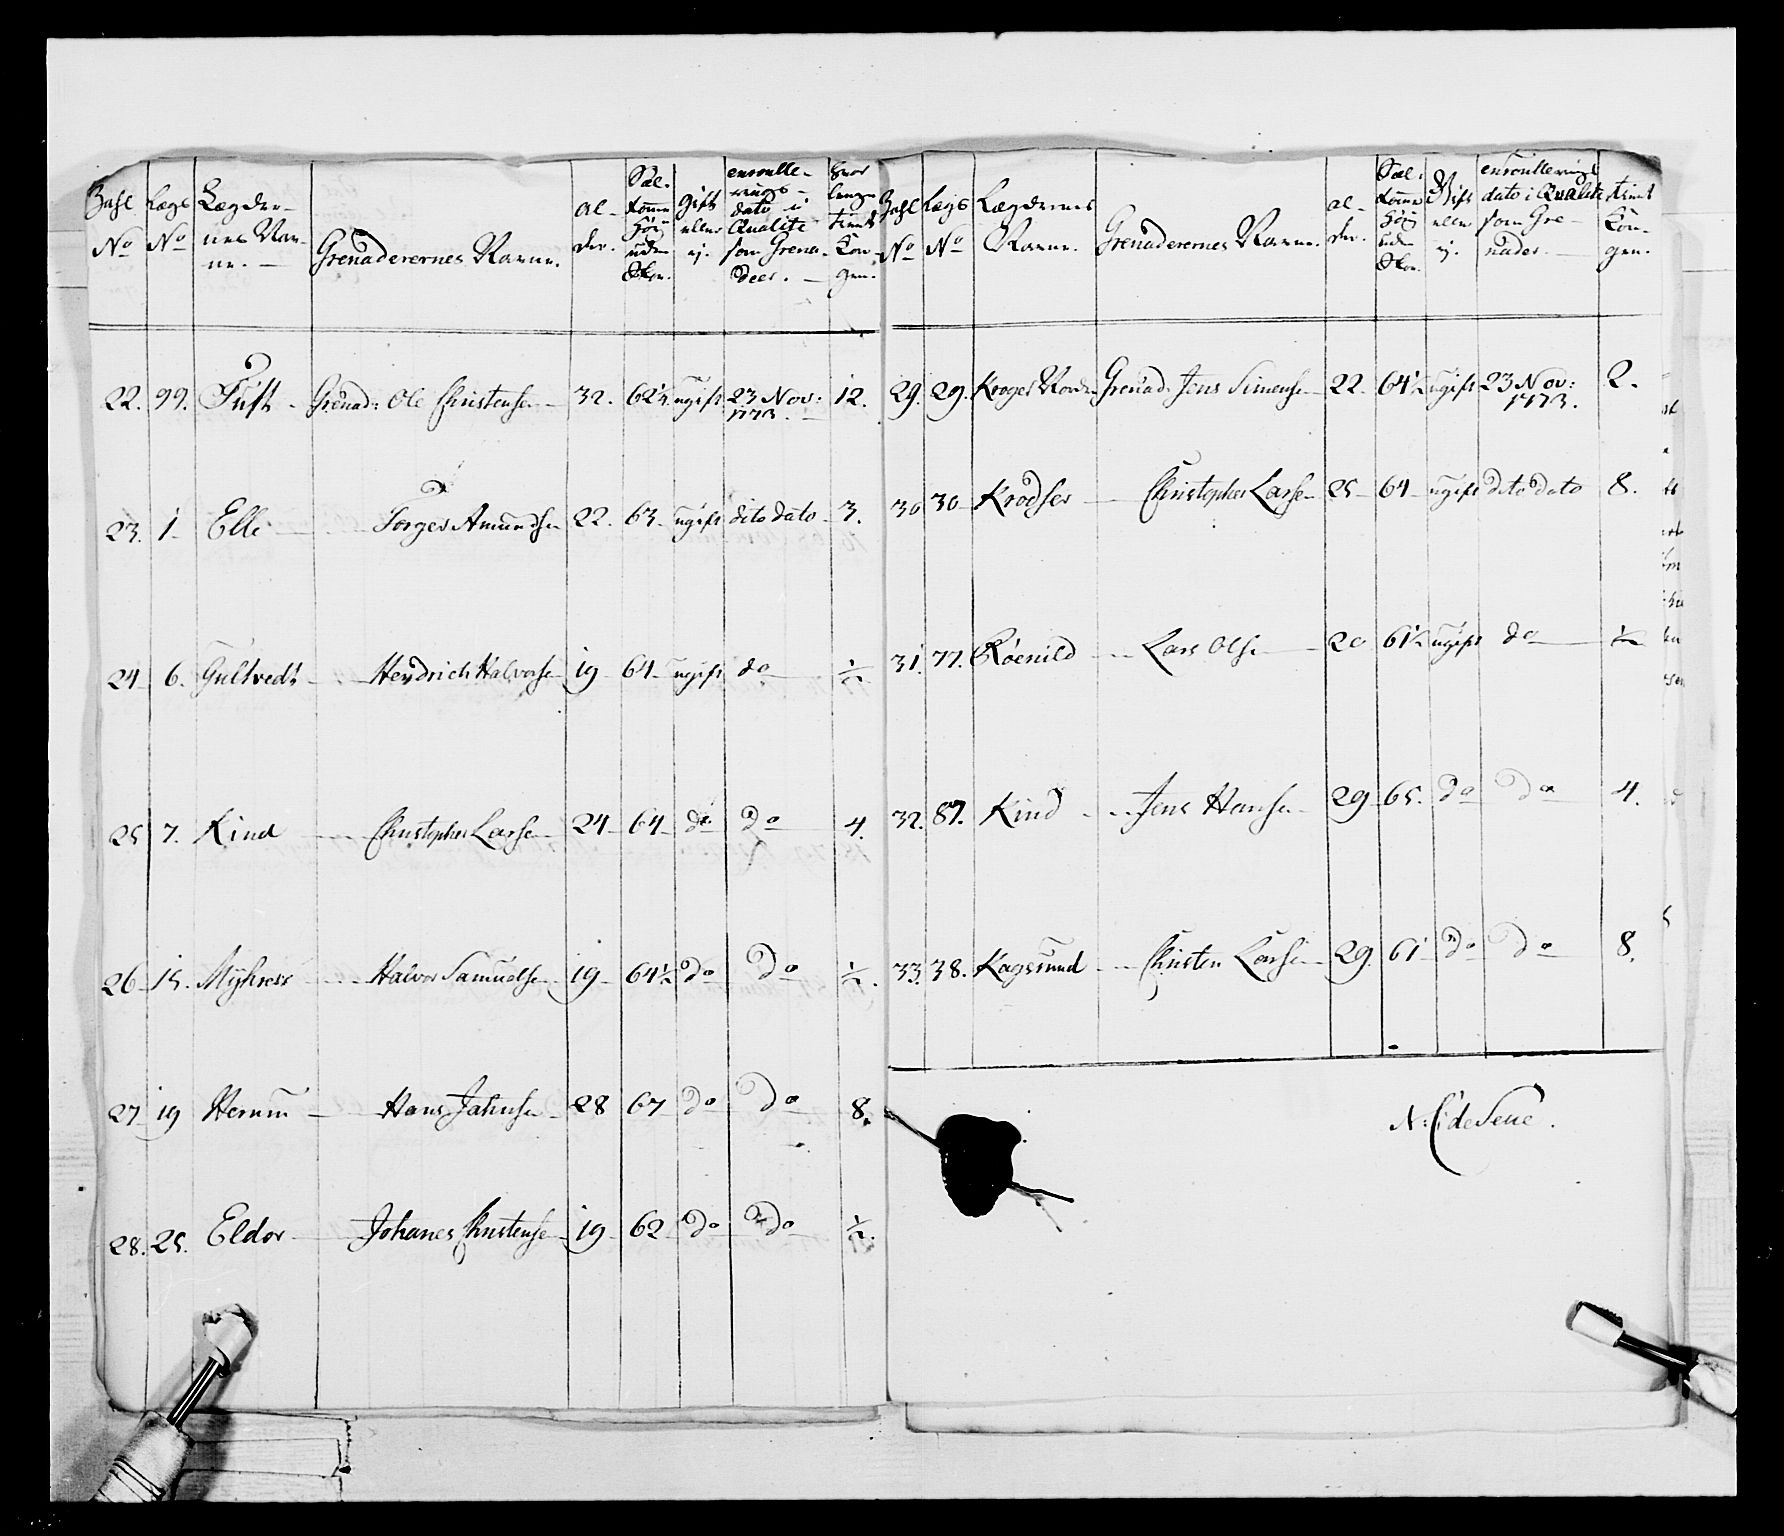 Zahl No | Lægs No | Lægder-nes Nav-ne. | Grenaderernes Navne. | al-der. | gift eller ej. | enroulle-rings-dato i Qualite som Grena-deer. | hvor længe tient Kon-gen.
22. | 99. | Tuft | Grenad: Ole Christensen | 32. | 62½ | ugift | 23 Nov: 1773. | 12.
23. | 1. | Elle | Torger Amundsen | 22. | 63. | ugift | dito dato | 3.
24 | 6. | Gultvedt | Hendrich Halvorsen | 19 | 64 | ugift | do | ½
25 | 7. | Kind | Christopher Larsen | 24 | 64 | do | do | 4.
26 | 15. | Myhrers | Halvor Samuelsen | 19 | 64½ | do | do | ½.
27 | 19 | Hernm | Hans Jahnsen | 28 | 67 | do | do | 8.
28. | 25. | Eldor | Johanes Christensen | 19 | 62 | do | do | ½.
Zahl No | Lægs No | Lægdernes Navne. | Grenaderernes Navne. | al-der. | Gift eller ej. | enroullerings dato i Qualite som Gre-nader. | tient Kon-gen.
29. | 29. | Kroger Nordre | Grenad: Jens Simensen | 22. | 64½ | ugift | 23 Nov: 1773. | 2.
30 | 30 | Krodser | Christopher Larsen | 25 | 64 | ugift | dito dato | 8.
31. | 77. | Röenild | Lars Olsen | 20 | 61½ | ugift | do | ½
32. | 87. | Kind | Jens Hansen | 29 | 65. | do | do | 4.
33. | 38. | Kagerund | Christen Larsen | 29. | 61 | do | do | 8.
N: C: de Seue.